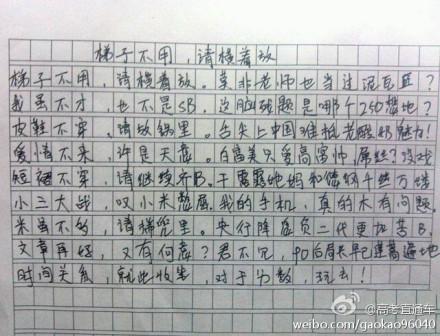 梯子不用，请横着放
梯子不用，请横着放。莫非老师也当过泥瓦匠？
我虽不才，也不是SB。这脑残题是哪个250想地？
皮鞋不穿，请放锅里。舌尖上中国难抵老酸奶魅力！
爱情不来，许是天意。白富美只爱高富帅，屌丝？没戏
短裙不穿，请继续齐B。干露露她妈和你俩千丝万缕
小三大战，叹小米憋屈。我的手机，真的木有问题。
米虽不多，请端兜里。央行降薪负二代更加苦B。
文章再好，又有何意？君不见，90后局长早已遍地
时间关系，就此收笔，对于分数，玩去！
@高考直通车
weibo.com/gaokao96040